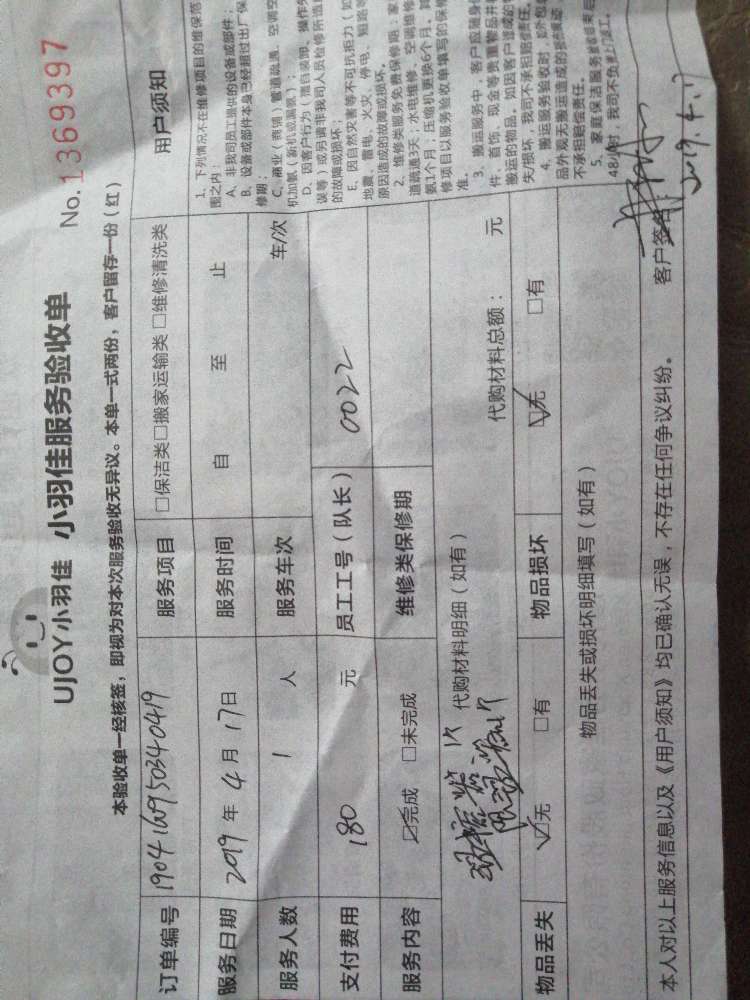 UJOY小羽佳 小羽佳服务验收单
No. 1369397
本验收单一经核签，即视为对本次服务验收无异议。本单一式两份，客户留存一份（红）
订单编号 19041609503404019 服务项目 □保洁类□搬家运输类□维修清洗类
服务日期 2019年4月17日 服务时间 自 至 止
服务人数 1 人 服务车次 车/次
支付费用 180 元 员工工号（队长） 0022
服务内容 ☑完成 □未完成 维修类保修期
代购材料明细（如有） 代购材料总额： 元
物品丢失 ☑无 □有 物品损坏 ☑无 □有
物品丢失或损坏明细填写（如有）
用户须知
1、下列情况不在维修项目的维保范
围之内：
A、非我司员工提供的设备或部件；
B、设备或部件本身已经超过出厂保
修期；
C、商业（商铺）管道疏通、空调空
机加氨（新机或漏氨）；
D、因客户行为（擅自装卸、操作失
误等）或另请非我司人员检修所造
的故障或损坏；
E、因自然灾害等不可抗拒力（如
地震、雷电、火灾、停电、短路等
原因造成的故障或损坏。
2、维修类服务免费保修期：家
道疏通3天；水电维修、空调维修
氨1个月；压缩机更换6个月。其
修项目以服务验收单填写的保修
准。
3、搬运服务中，客户应随身
件、首饰、现金等贵重物品并
搬运的物品，如因客户
失/损坏，我司不承担赔偿责任。
4、搬运服务验收时，如外包
品外观无搬运造成的
不承担赔偿责任。
5、家庭保洁服务
48小时，我司不负
本人对以上服务信息以及《用户须知》均已确认无误，不存在任何争议纠纷。 客户签名：
2019.4.17